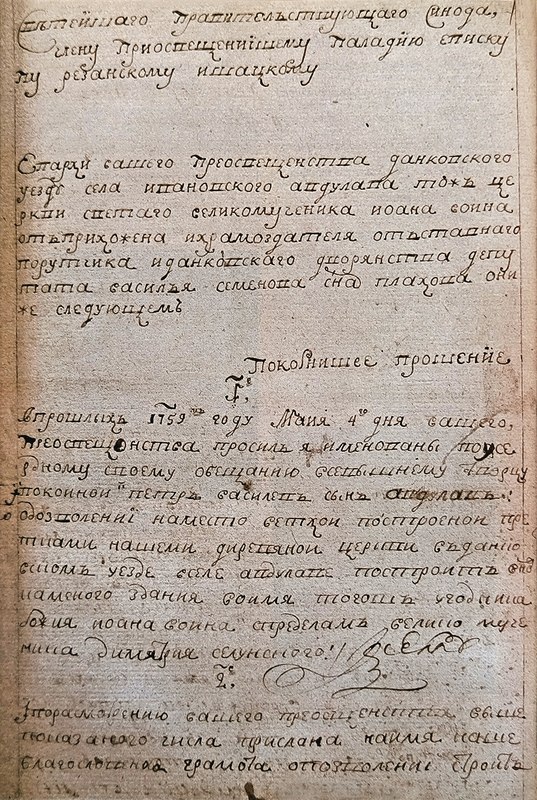 Святейшаго правительствующаго Синода,
члену приоспещенншему паладию еписку
пу резанскому ишацкому
Епархи вашего преоспещенства данковского
уезде села ивановского авдулава тожъ це
ркви светаго великомученика иоана воина
отъ прихожена ихрамоздателя отъставнаго
порутчика иданковскаго дворянства депу
тата василья семенова сна плахова они
же следующемъ
Покорнишее прошение
1е.
впрошлыхъ 1759мъ году Маия 4го дня вашего,
преоспещенства просилъ я именованы поусе
рдному своему обещанию всевышнему творцу
покоиной петръ василевъ сынъ авдулавъ:
одозволени наместо ветхои построеной пре
тками нашеми диревяной церкви вданко
вскомъ уезде вселе авдулаве построить вно
каменого здания воимя тогожъ угодника
божия иоана воина спределамъ велико муче
ника димитрия селунского! //
2е.
порасмотрению вашего преосвещенства выше
показаного числа прислана наимя наше
благословеная грамота опозволени строить